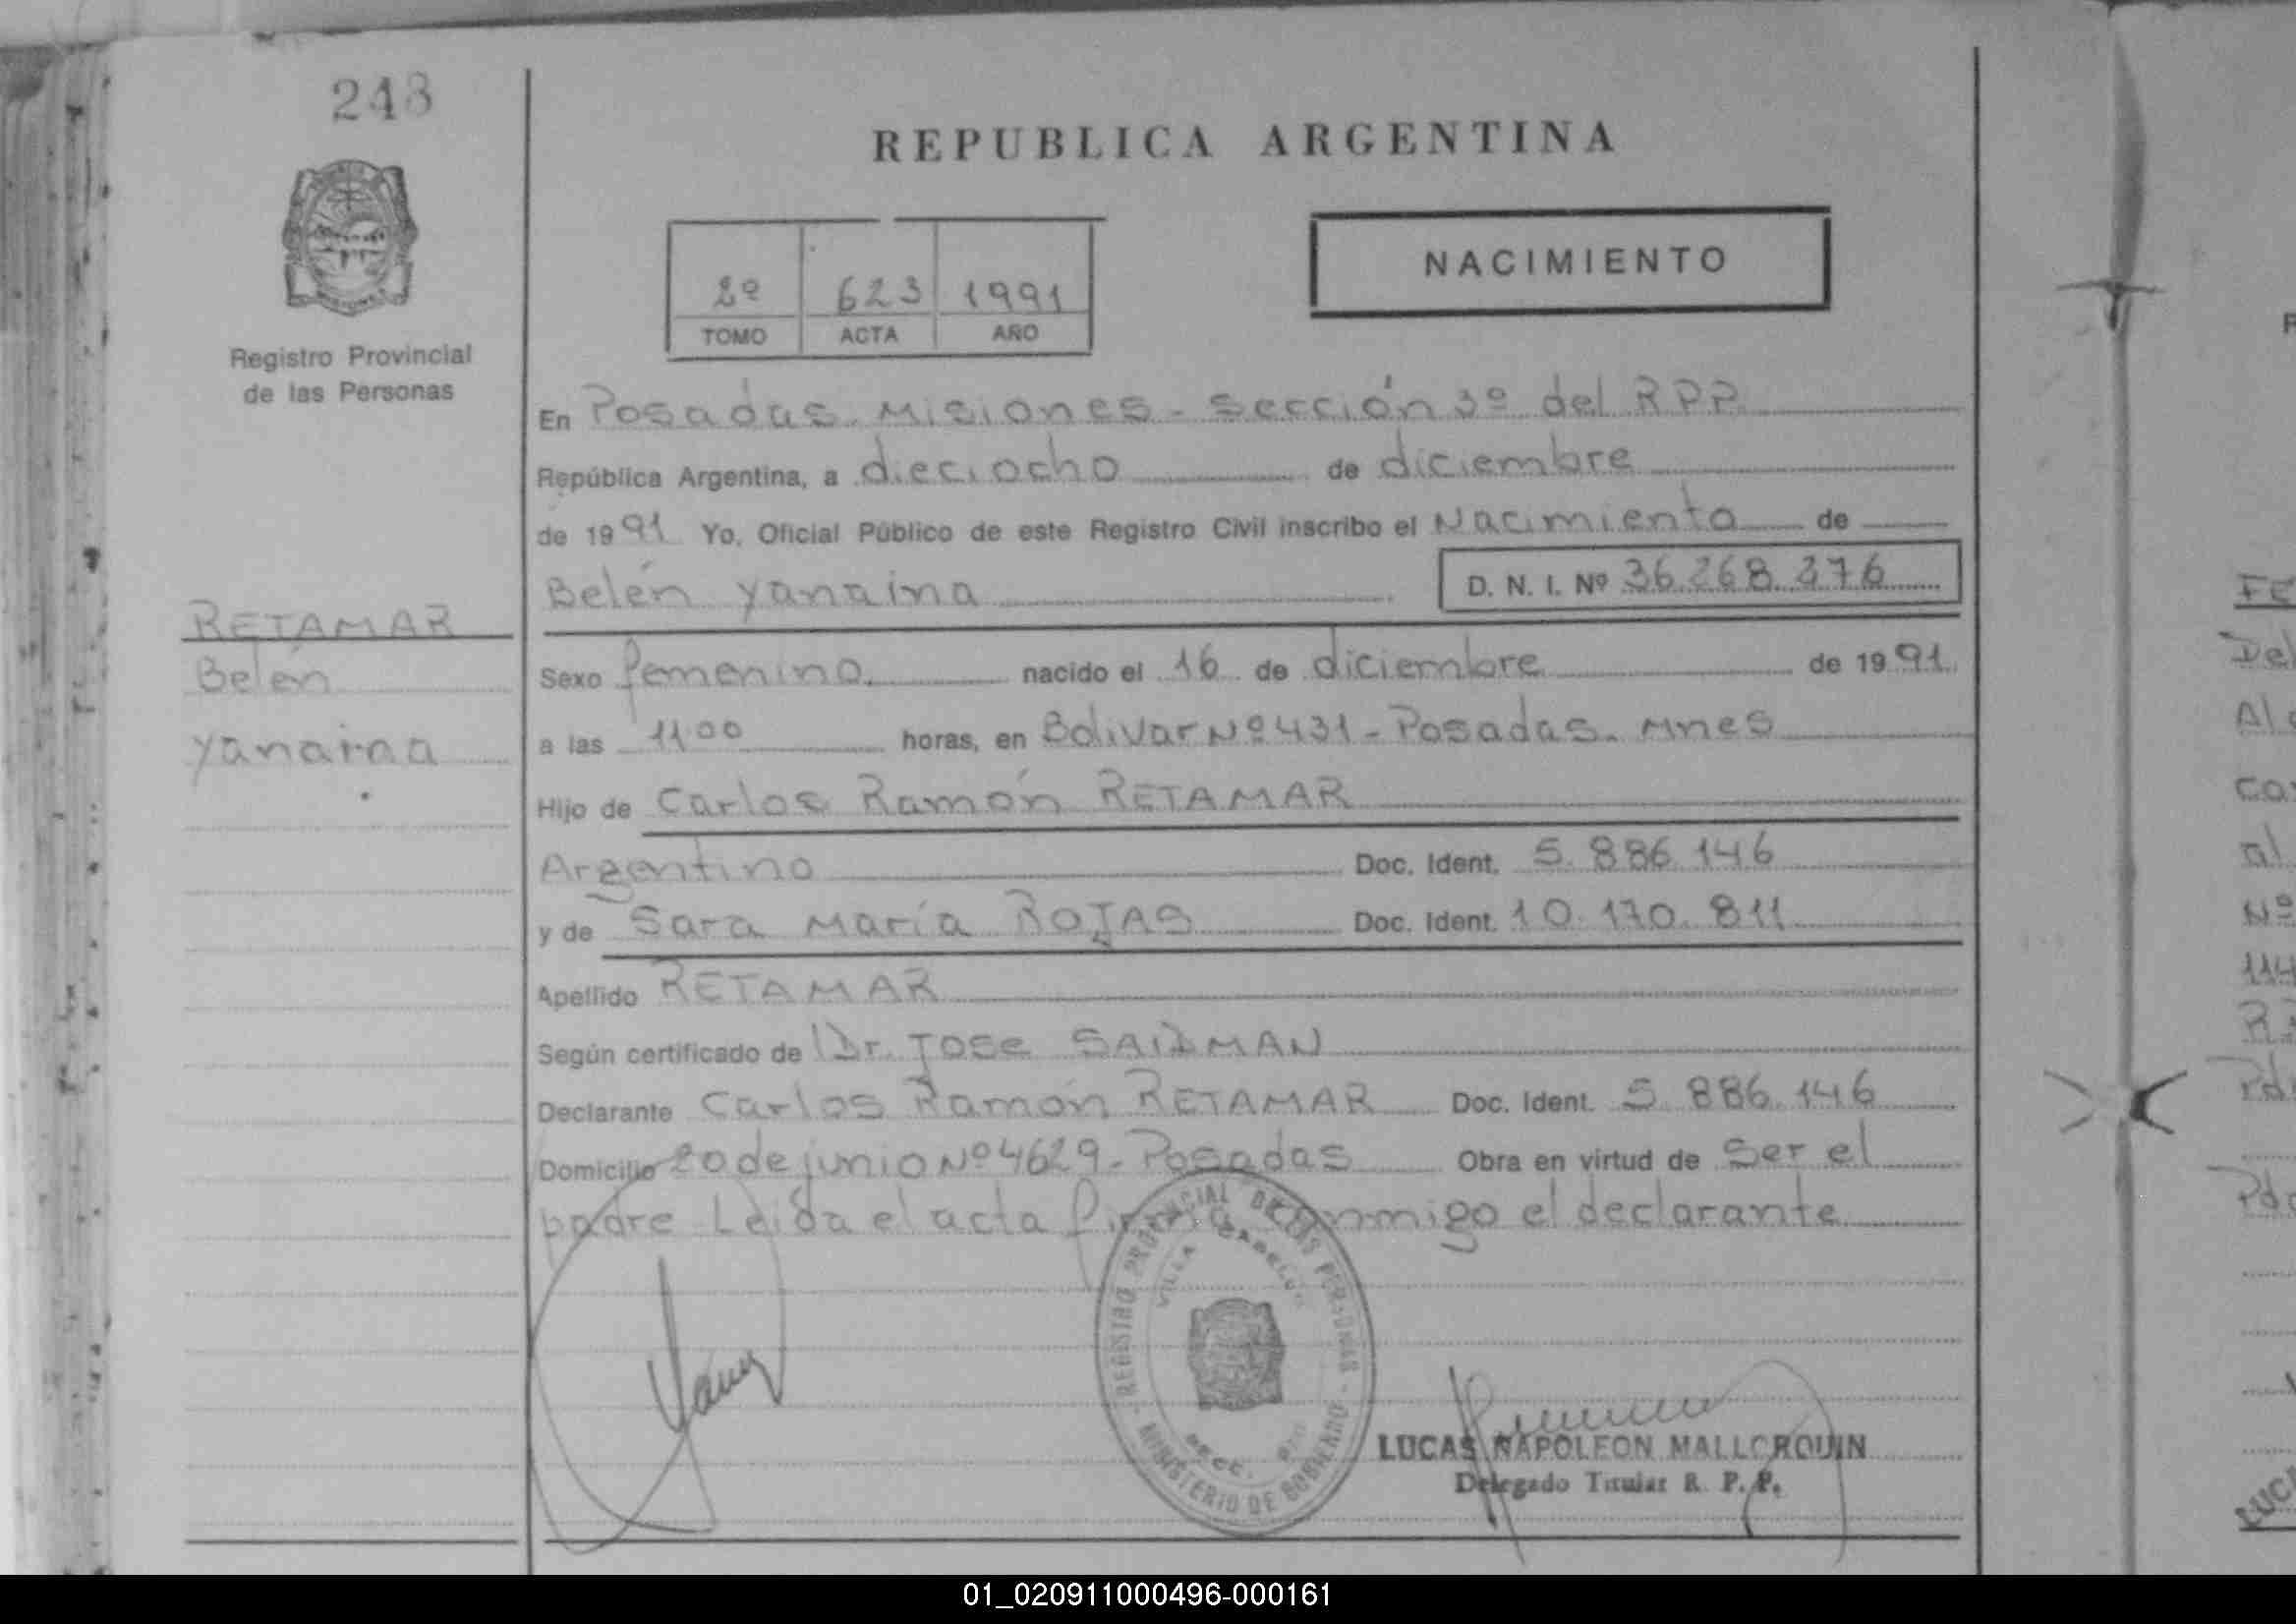 248
REPUBLICA ARGENTINA
NACIMIENTO
2º 623 1991
TOMO ACTA AÑO
Registro Provincial
de las Personas
En Posadas. Misiones - Sección 3º del RPP.
República Argentina, a dieciocho de diciembre
de 1991 Yo, Oficial Público de este Registro Civil inscribo el Nacimiento de
Belén Yanaina D. N. I. Nº 36.268.276
RETAMAR
Belén
Yanaina
Sexo femenino. nacido el 16 de diciembre de 1991.
a las 11 00 horas, en Bolivar Nº 431 - Posadas. Mnes
Hijo de Carlos Ramón RETAMAR
Argentino Doc. Ident. 5.886.146
y de Sara María ROJAS Doc. Ident. 10.170.811
Apellido RETAMAR
Según certificado de Dr. JOSE SAIDMAN
Declarante Carlos Ramón RETAMAR Doc. Ident. 5.886.146
Domicilio 20 de junio Nº 4629 - Posadas Obra en virtud de ser el
padre Leida el acta firma conmigo el declarante
REGISTRO PROVINCIAL DE LAS PERSONAS
VILLA
SECC.
MINISTERIO DE GOBIERNO
LUCAS NAPOLEON MALLORQUIN
Delegado Titular R. P. P.
01_020911000496-000161